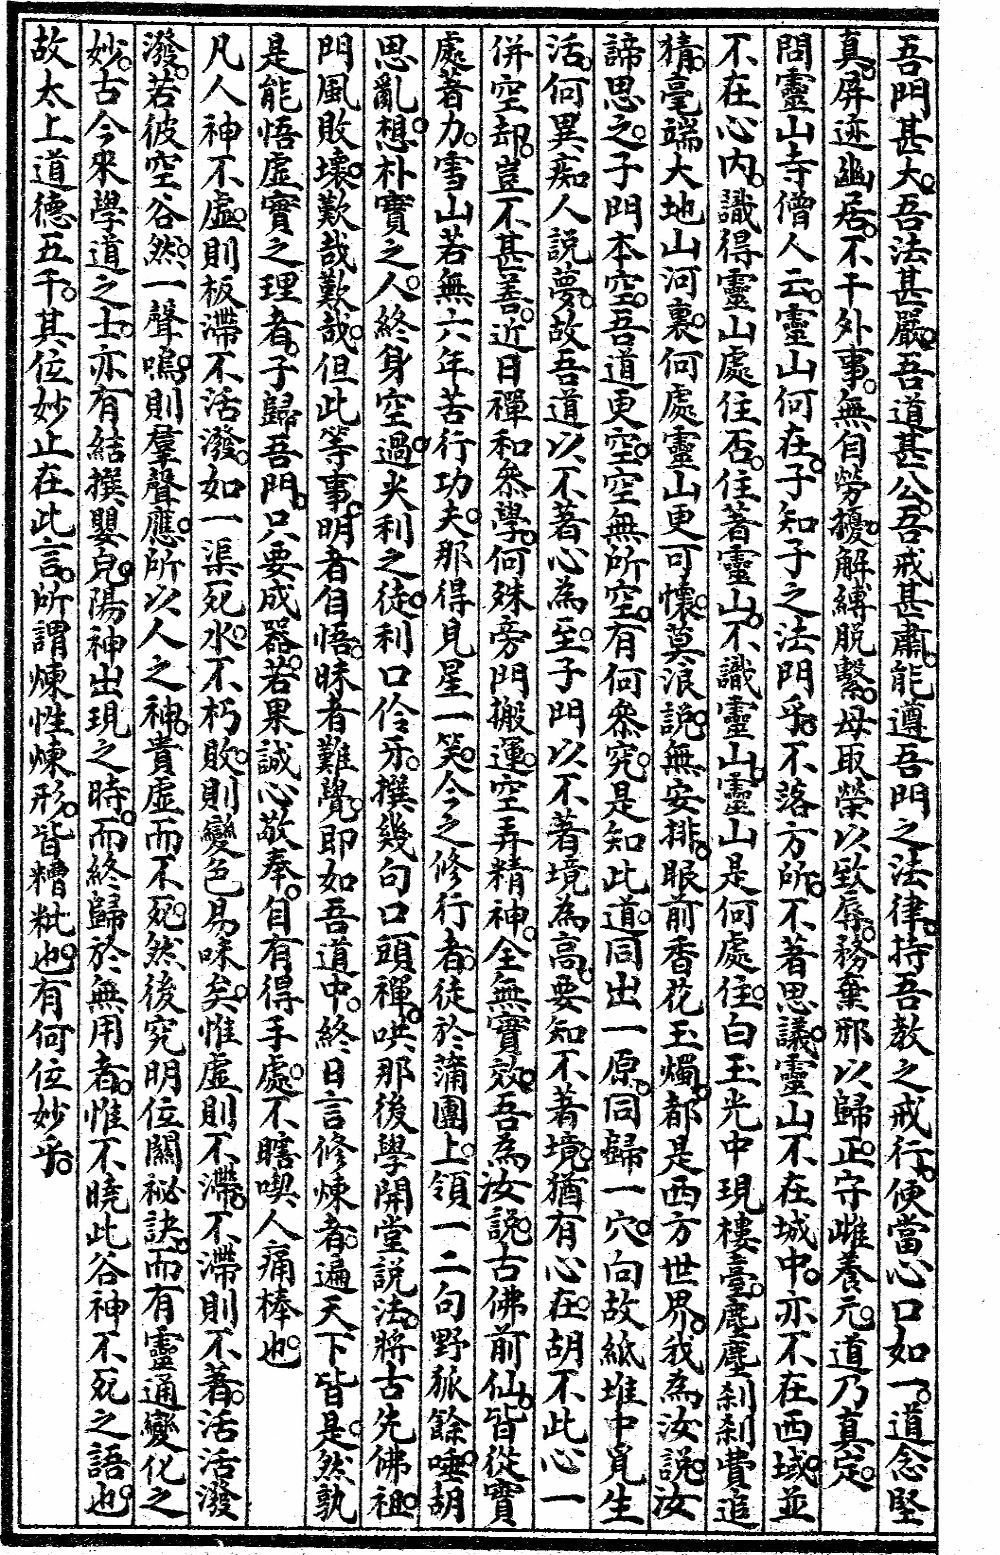 吾門甚大。吾法甚嚴。吾道甚公。吾戒甚肅。能遵吾門之法律。持吾教之戒行。便當心口如一。道念堅
真。屏迹幽居。不干外事。無自勞擾。解縛脫繫。毋取榮以致辱。務棄邪以歸正。守雌養元。道乃真定。
問靈山寺僧人云。靈山何在。子知子之法門乎。不落方所。不著思議。靈山不在城中。亦不在西域。並
不在心內。識得靈山處住否。住著靈山。不識靈山。靈山是何處住。白玉光中現樓臺。塵塵剎剎費追
猜。毫端大地山河裏。何處靈山更可懷。莫浪說。無安排。眼前香花玉燭。都是西方世界。我為汝說。汝
諦思之。子門本空。吾道更空。空無所空。有何參究。是知此道。同出一原。同歸一穴。向故紙堆中覓生
活。何異痴人說夢。故吾道以不著心為至。子門以不著境為高。要知不著境。猶有心在。胡不此心一
併空却。豈不甚善。近日禪和參學。何殊旁門搬運。空弄精神。全無實效。吾為汝說。古佛前仙。皆從實
處著力。雪山若無六年苦行功夫。那得見星一笑。今之修行者。徒於蒲團上。領一二句野狐餘唾。胡
思亂想。朴實之人。終身空過。尖利之徒。利口伶牙。撰幾句口頭禪。哄那後學。開堂說法。將古先佛祖
門風敗壞。歎哉歎哉。但此等事。明者自悟。昧者難覺。即如吾道中。終日言修煉者。遍天下皆是。然孰
是能悟虛實之理者。子歸吾門。只要成器。若果誠心敬奉。自有得手處。不瞎喫人痛棒也。
凡人神不虛。則板滯不活潑。如一渠死水。不朽敗。則變色易味矣。惟虛則不滯。不滯則不著。活活潑
潑。若彼空谷然。一聲鳴。則羣聲應。所以人之神。貴虛而不死。然後究明位關祕訣。而有靈通變化之
妙。古今來學道之士。亦有結撰嬰兒。陽神出現之時。而終歸於無用者。惟不曉此谷神不死之語也。
故太上道德五千。其位妙止在此言。所謂煉性煉形。皆糟粃也。有何位妙乎。